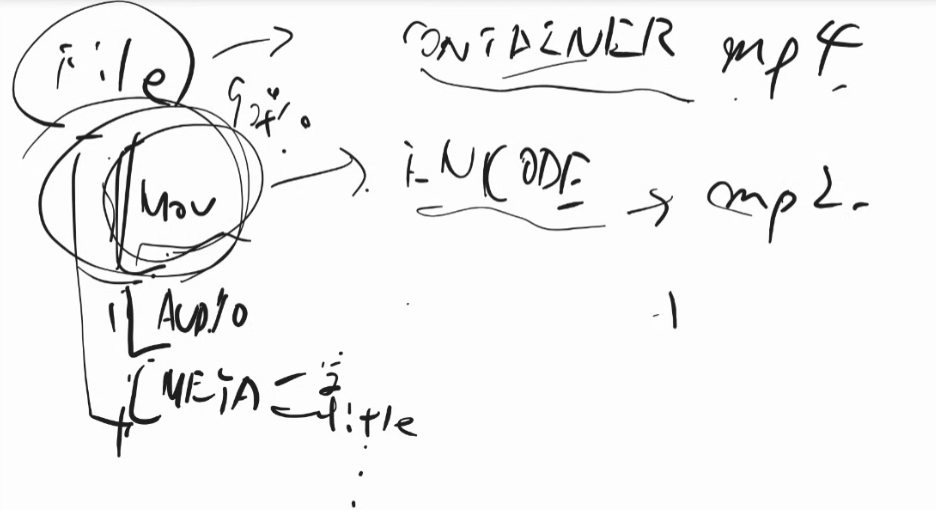 File → CONTAINER mp4
Mov → ENCODE → mp2.
AUDIO
META
title